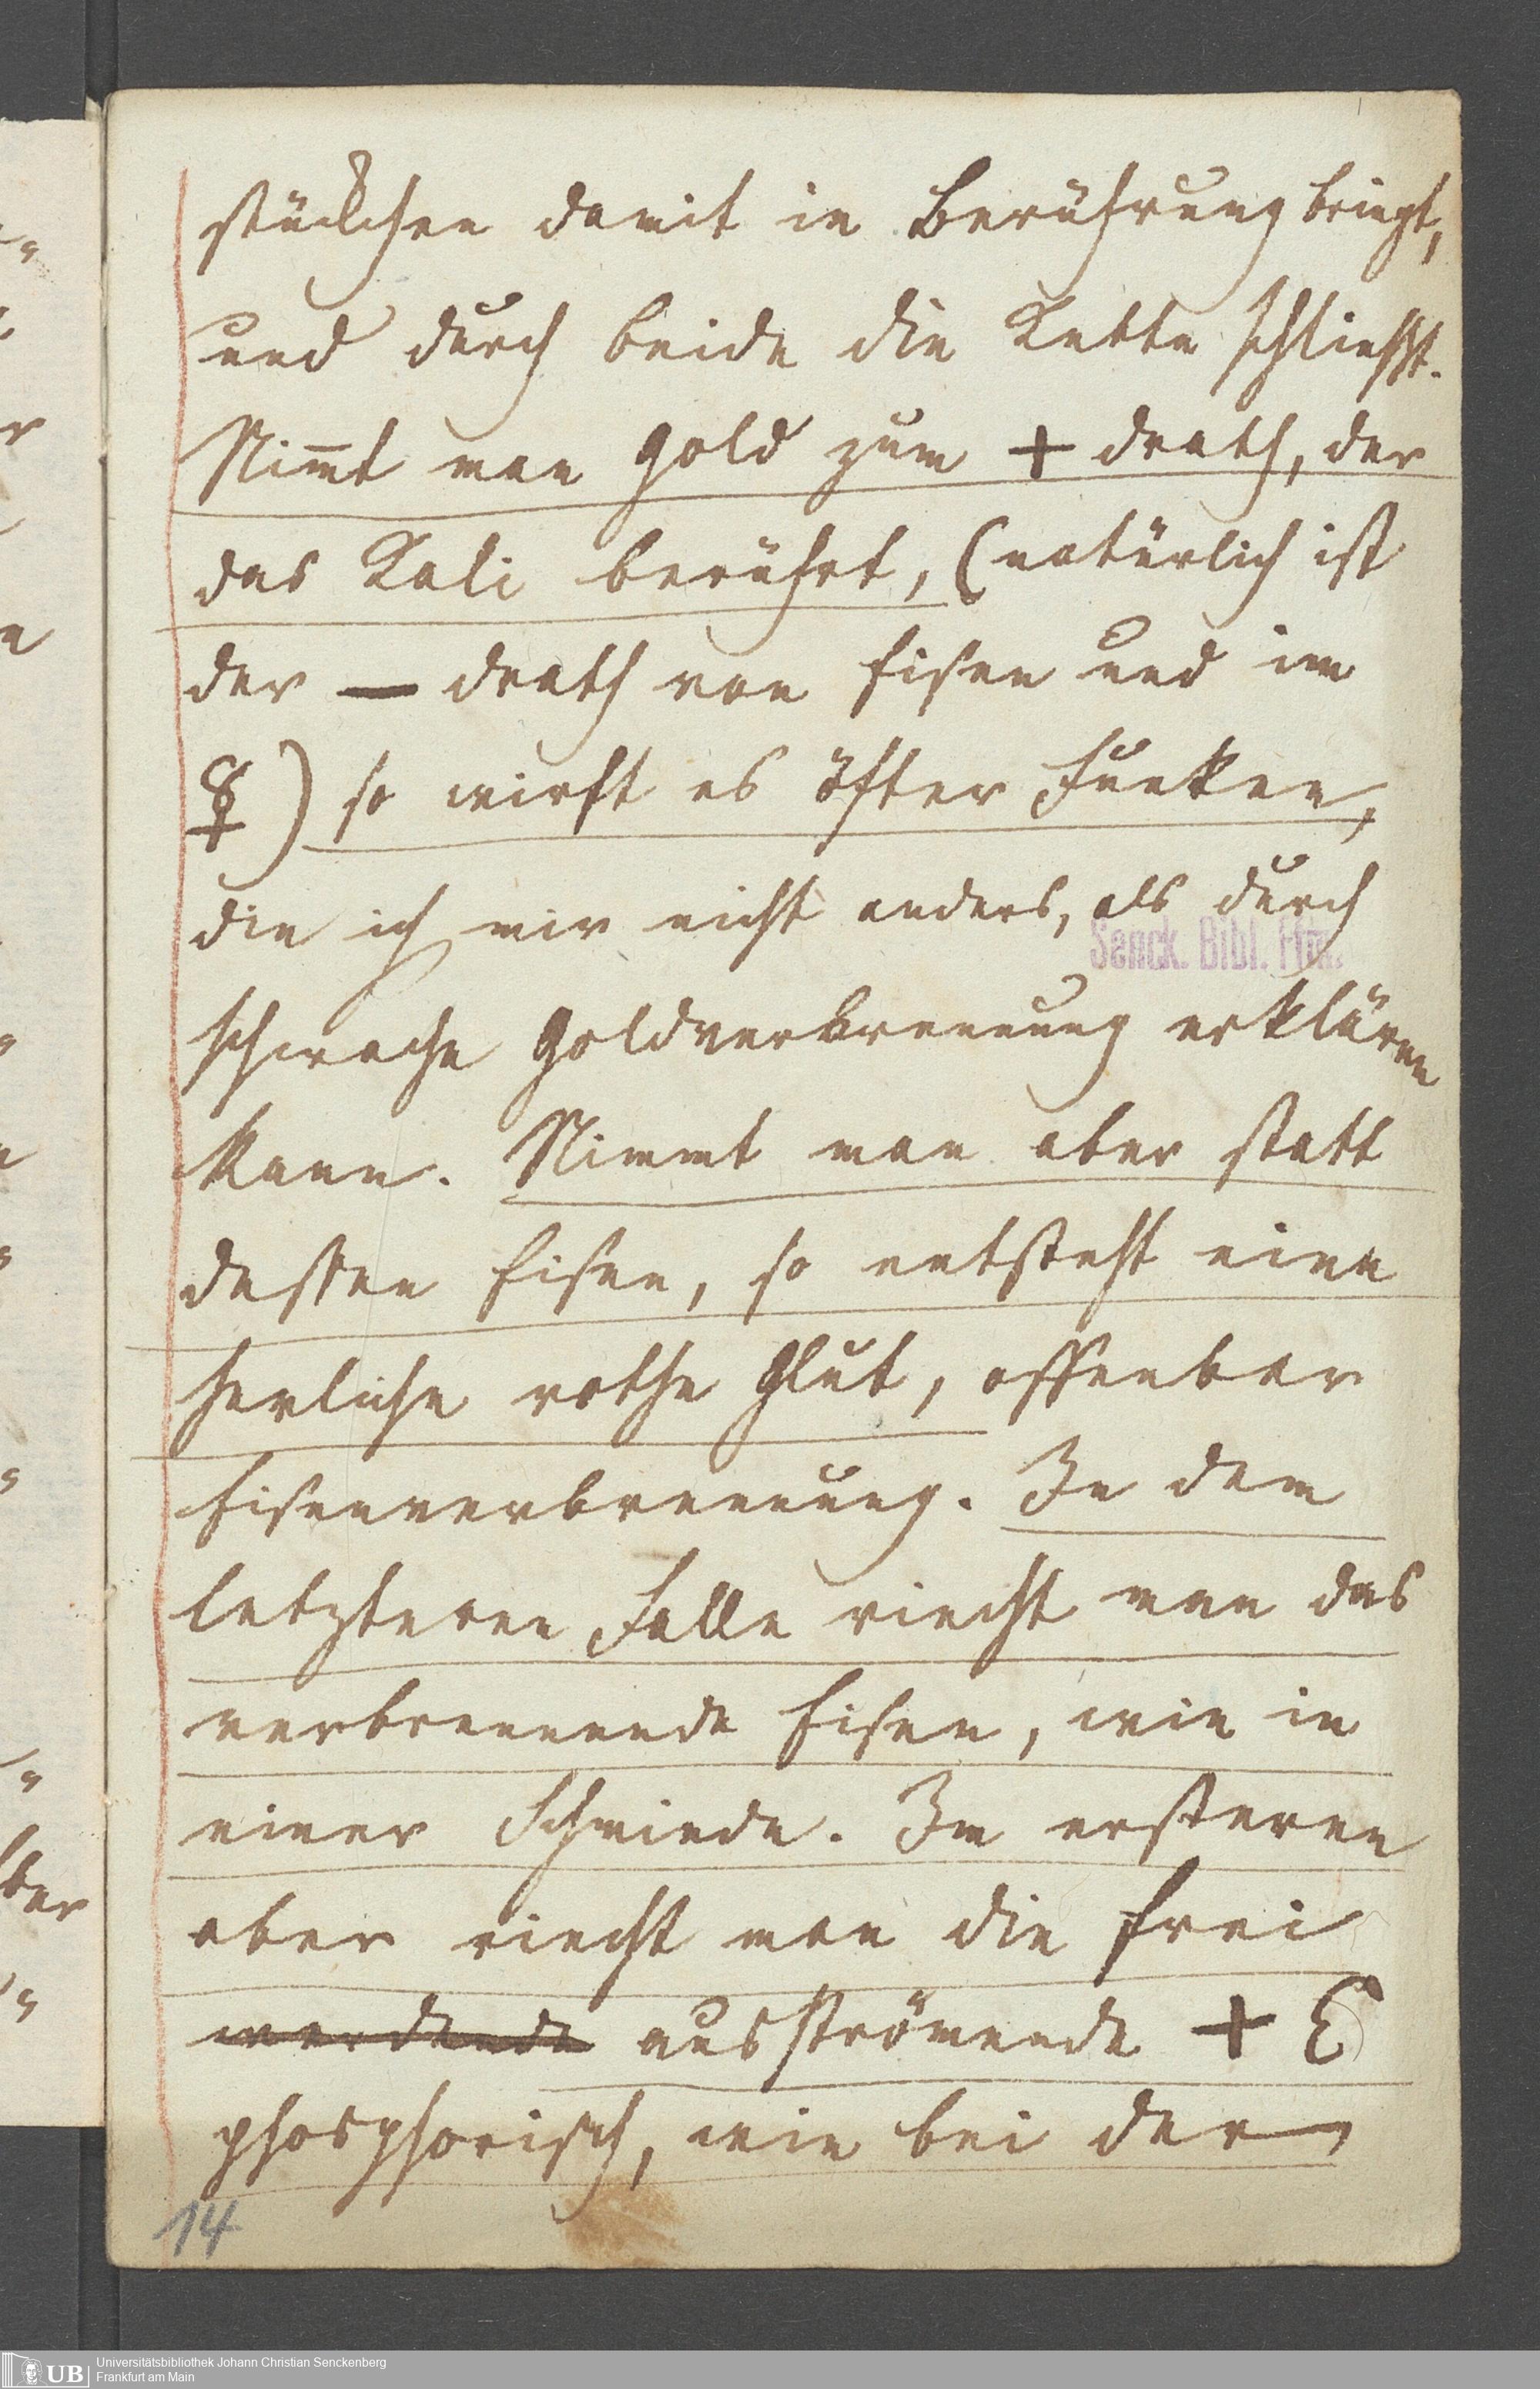 stückchen damit in Berührung bringt,
und durch beide die Kette schliesst.
Nim̅t man Gold zum + drath, der
das Kali berührt, (natürlich ist
der — drath von Eisen und im
☿) so wirft es öfter Funken,
die ich mir nicht anders, als durch
Senck. Bibl. Ffm.
schwache Goldverbrennung erklären
kann. Nimmt man aber statt
dessen Eisen, so entsteht eine
herliche rothe Glut, offenbar
Eisenverbrennung. In dem
letzteren Falle riecht man das
verbrennende Eisen, wie in
einer Schmiede. Im ersteren
aber riecht man die frei
werdende ausströmende + E
phosphorisch, wie bei der
14
Universitätsbibliothek Johann Christian Senckenberg
Frankfurt am Main
UB